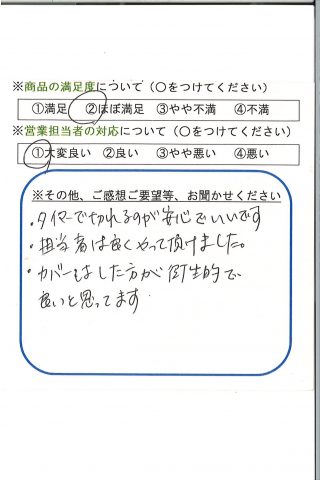 ※商品の満足度について（○をつけてください）
①満足 ②ほぼ満足 ③やや不満 ④不満
※営業担当者の対応について（○をつけてください）
①大変良い ②良い ③やや悪い ④悪い
※その他、ご感想ご要望等、お聞かせください
・タイマーで切れるのが安心でいいです
・担当者は良くやって頂けました。
・カバーもした方が衛生的で
良いと思ってます